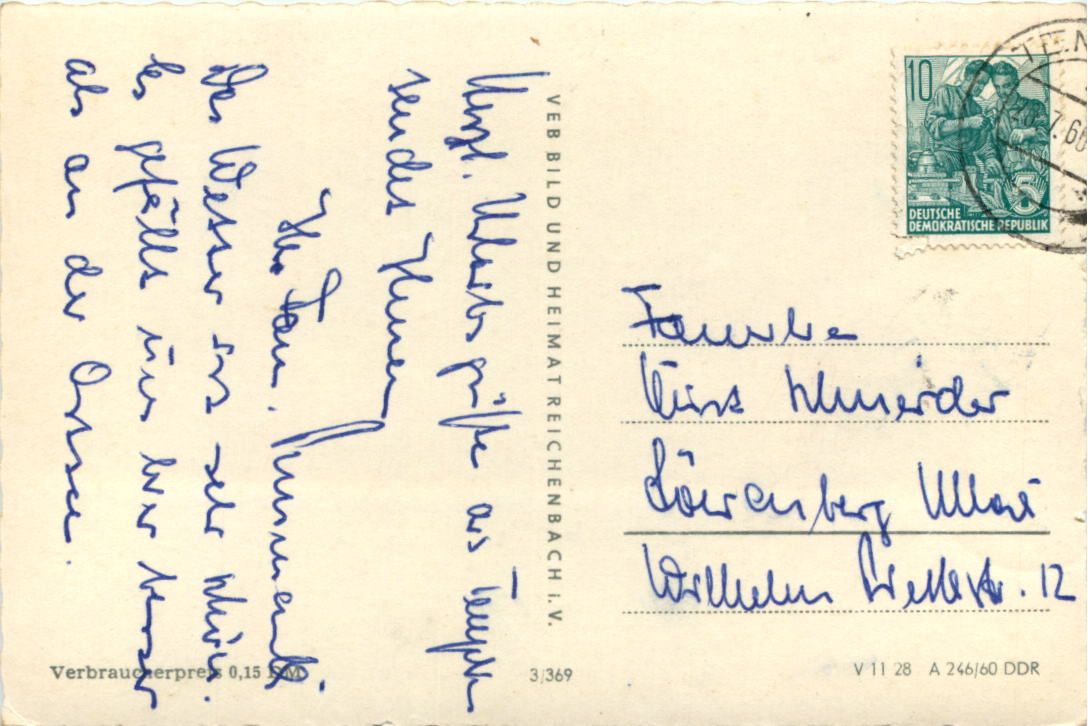 Herzl. Urlaubsgrüße aus Templin
sendet Ihnen
Ihre Fam.
Das Wetter ist sehr schön.
Es gefällt uns hier besser
als an der Ostsee.
Verbraucherpreis 0,15 DM
VEB BILD UND HEIMAT REICHENBACH i. V.
3/369
10
5
DEUTSCHE
DEMOKRATISCHE REPUBLIK
7.60
Familie
Kurt Schneider
Löwenberg Mark
Wilhelm Pieckstr. 12
V 11 28 A 246/60 DDR